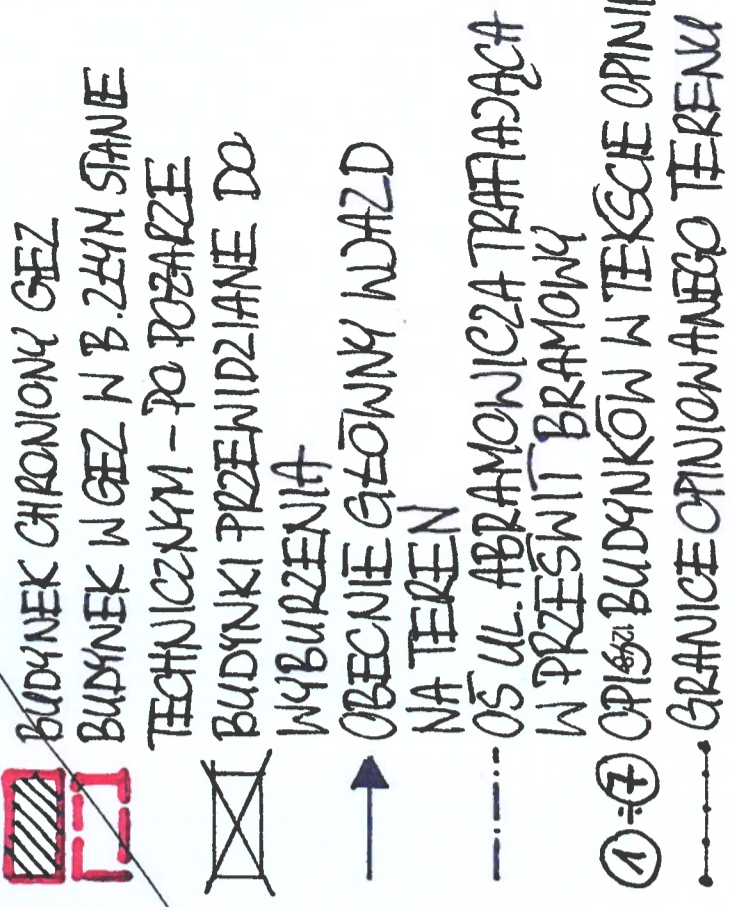 BUDYNEK CHRONIONY GEZ
BUDYNEK W GEZ W B. ZŁYM STANIE
TECHNICZNYM – PO POŻARZE
BUDYNKI PRZEWIDZIANE DO
WYBURZENIA
OBECNIE GŁÓWNY WJAZD
NA TEREN
OŚ UL. ABRAMOWICZA TRAFIAJĄCA
W PRZEŚWIT BRAMOWY
①÷⑦ OPIS BUDYNKÓW W TEKŚCIE OPINII
GRANICE OPINIOWANEGO TERENU